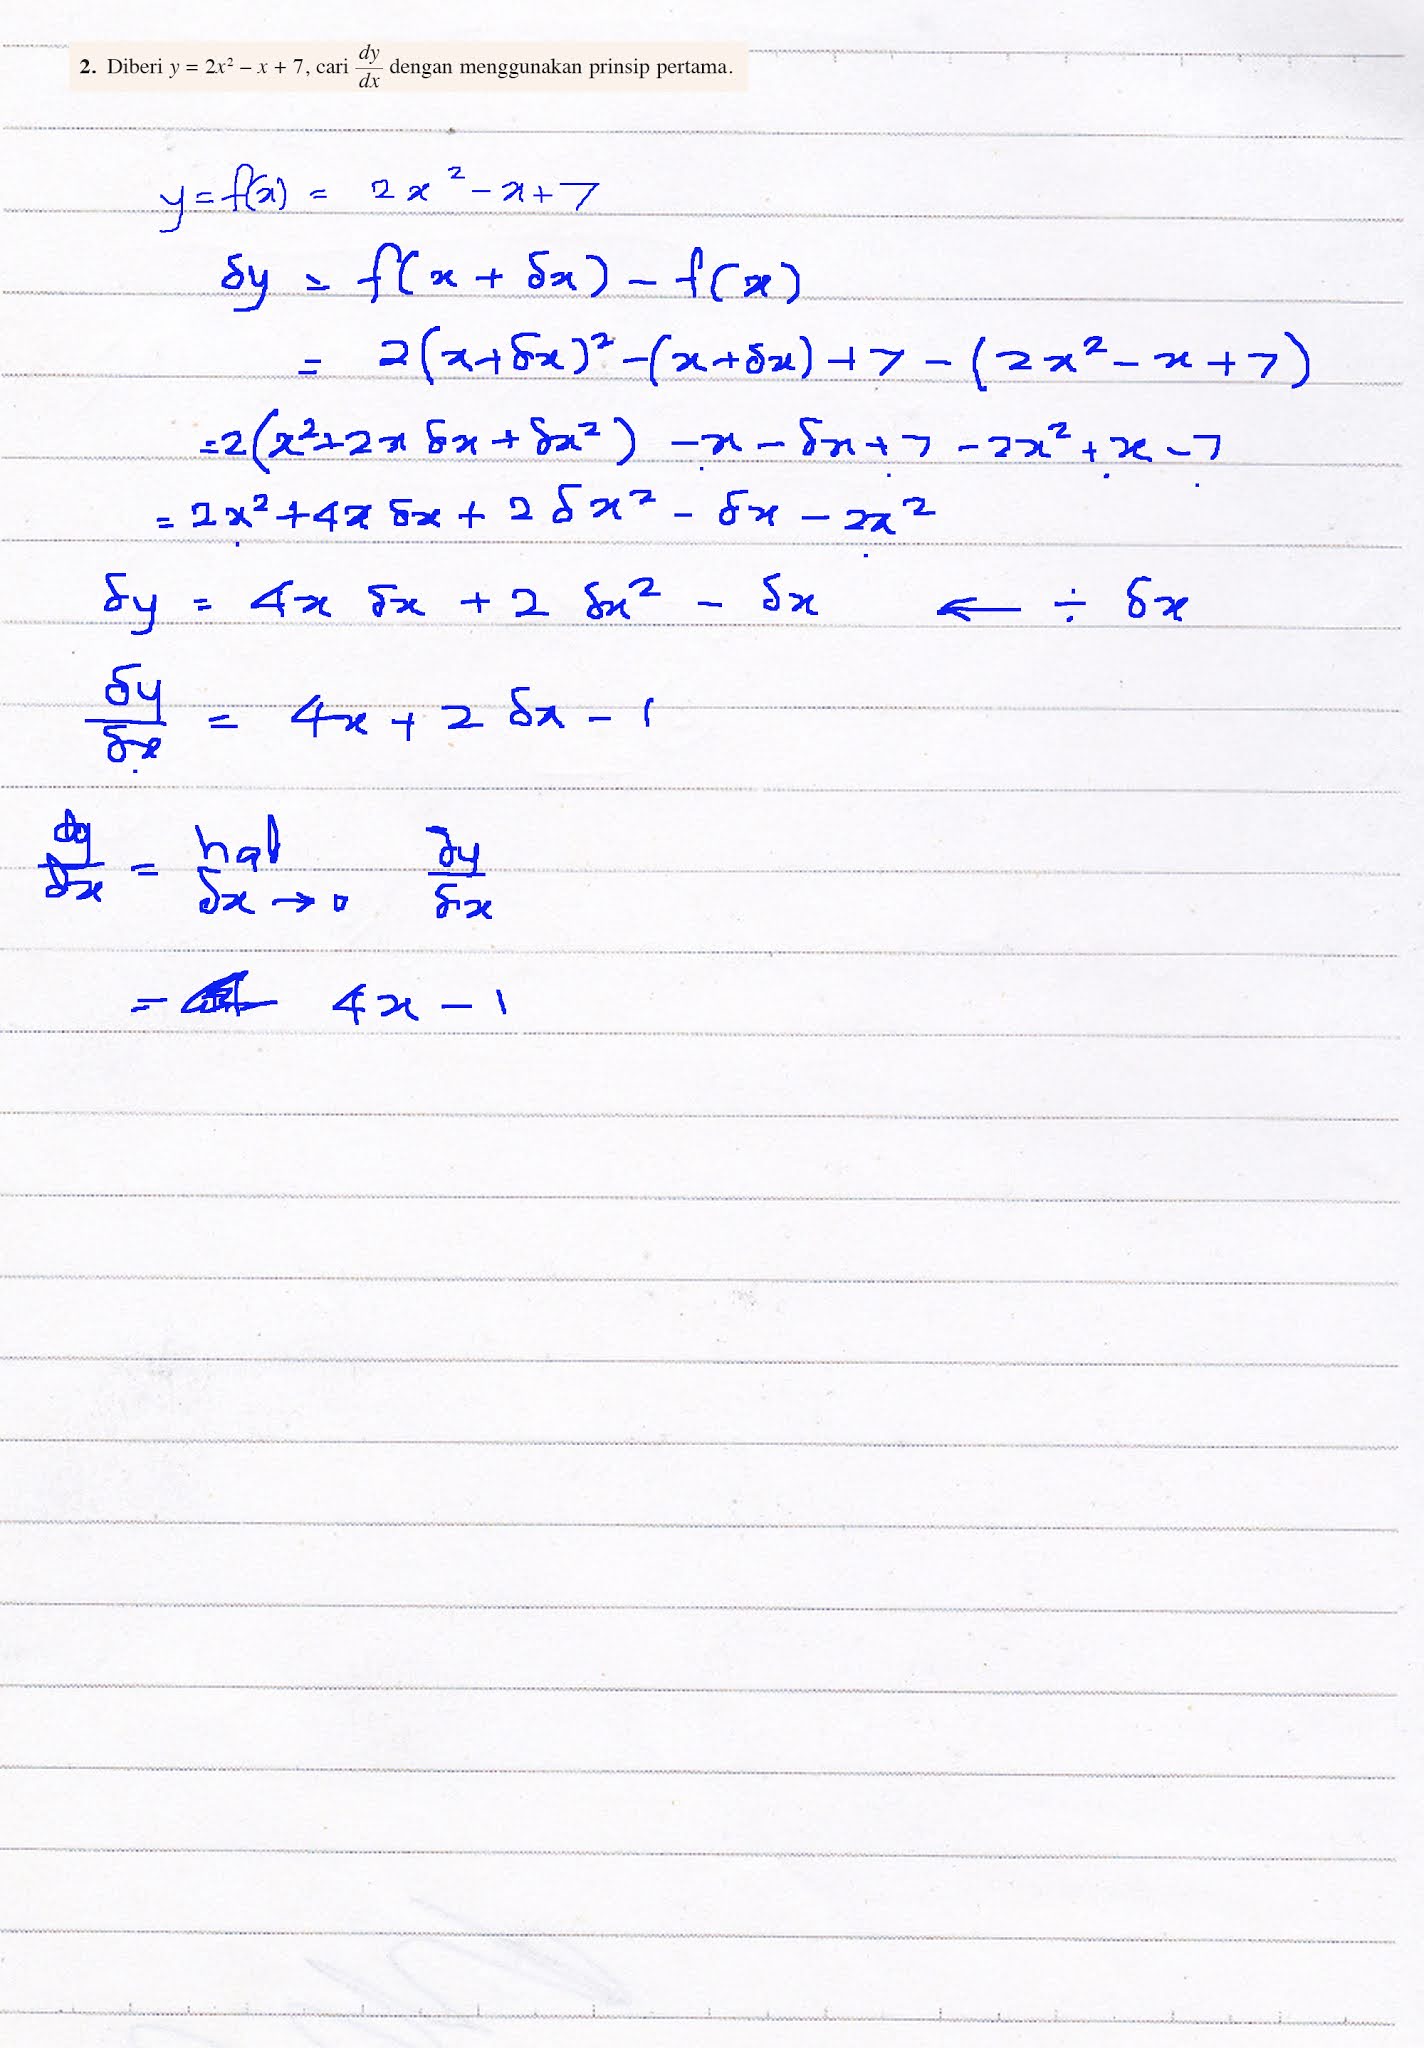 2. Diberi y = 2x² – x + 7, cari dy/dx dengan menggunakan prinsip pertama.
y = f(x) = 2x² - x + 7
δy = f(x + δx) - f(x)
= 2(x + δx)² - (x + δx) + 7 - (2x² - x + 7)
= 2(x² + 2x δx + δx²) - x - δx + 7 - 2x² + x - 7
= 2x² + 4x δx + 2 δx² - δx - 2x²
δy = 4x δx + 2 δx² - δx ← ÷ δx
δy/δx = 4x + 2 δx - 1
dy/dx = had δx → 0 δy/δx
= 4x - 1